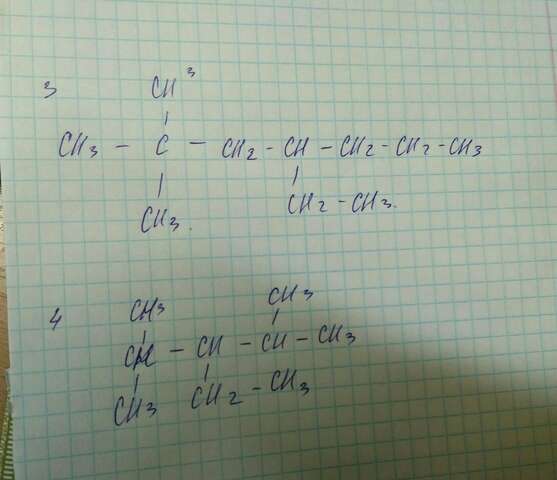 3 CH3
CH3 - C - CH2 - CH - CH2 - CH2 - CH3
CH3. CH2 - CH3.
4 CH3 CH3
CH - CH - CH - CH3
CH3 CH2 - CH3